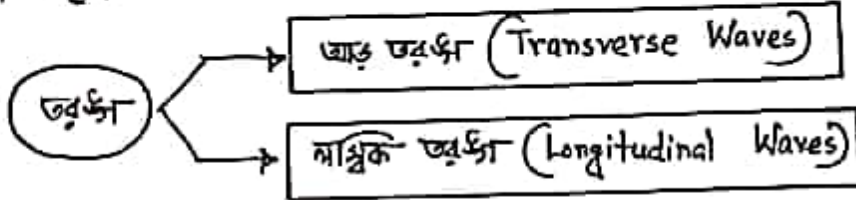 আড় তরঙ্গ (Transverse Waves)
তরঙ্গ
লাম্বিক তরঙ্গ (Longitudinal Waves)